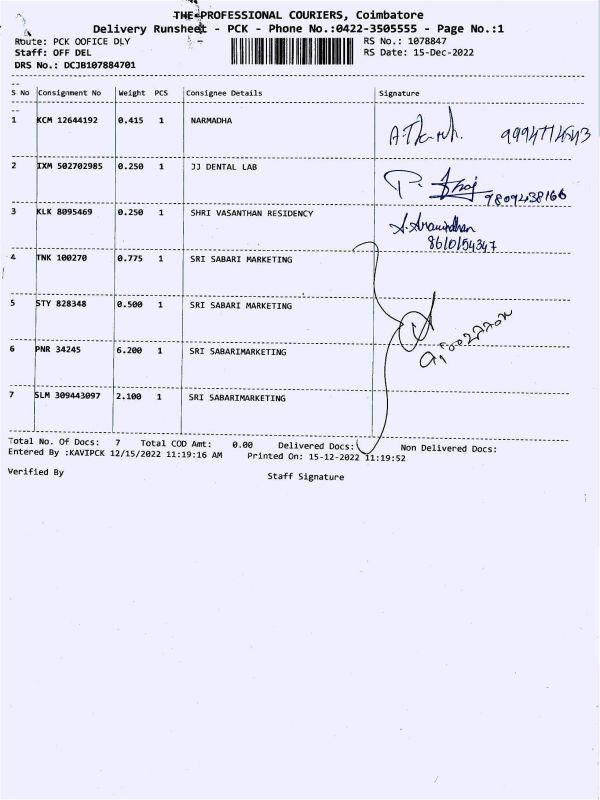 THE PROFESSIONAL COURIERS, Coimbatore
Delivery Runsheet - PCK - Phone No.:0422-3505555 - Page No.:1
Route: PCK OOFICE DLY RS No.: 1078847
Staff: OFF DEL RS Date: 15-Dec-2022
DRS No.: DCJB107884701
S No Consignment No Weight PCS Consignee Details Signature
1 KCM 12644192 0.415 1 NARMADHA
2 IXM 502702985 0.250 1 JJ DENTAL LAB 9809438166
3 KLK 8095469 0.250 1 SHRI VASANTHAN RESIDENCY A. Aravindhan
8610154347
4 TNK 100270 0.775 1 SRI SABARI MARKETING
5 STY 828348 0.500 1 SRI SABARI MARKETING
6 PNR 34245 6.200 1 SRI SABARIMARKETING
7 SLM 309443097 2.100 1 SRI SABARIMARKETING
Total No. Of Docs: 7 Total COD Amt: 0.00 Delivered Docs: Non Delivered Docs:
Entered By :KAVIPCK 12/15/2022 11:19:16 AM Printed On: 15-12-2022 11:19:52
Verified By Staff Signature